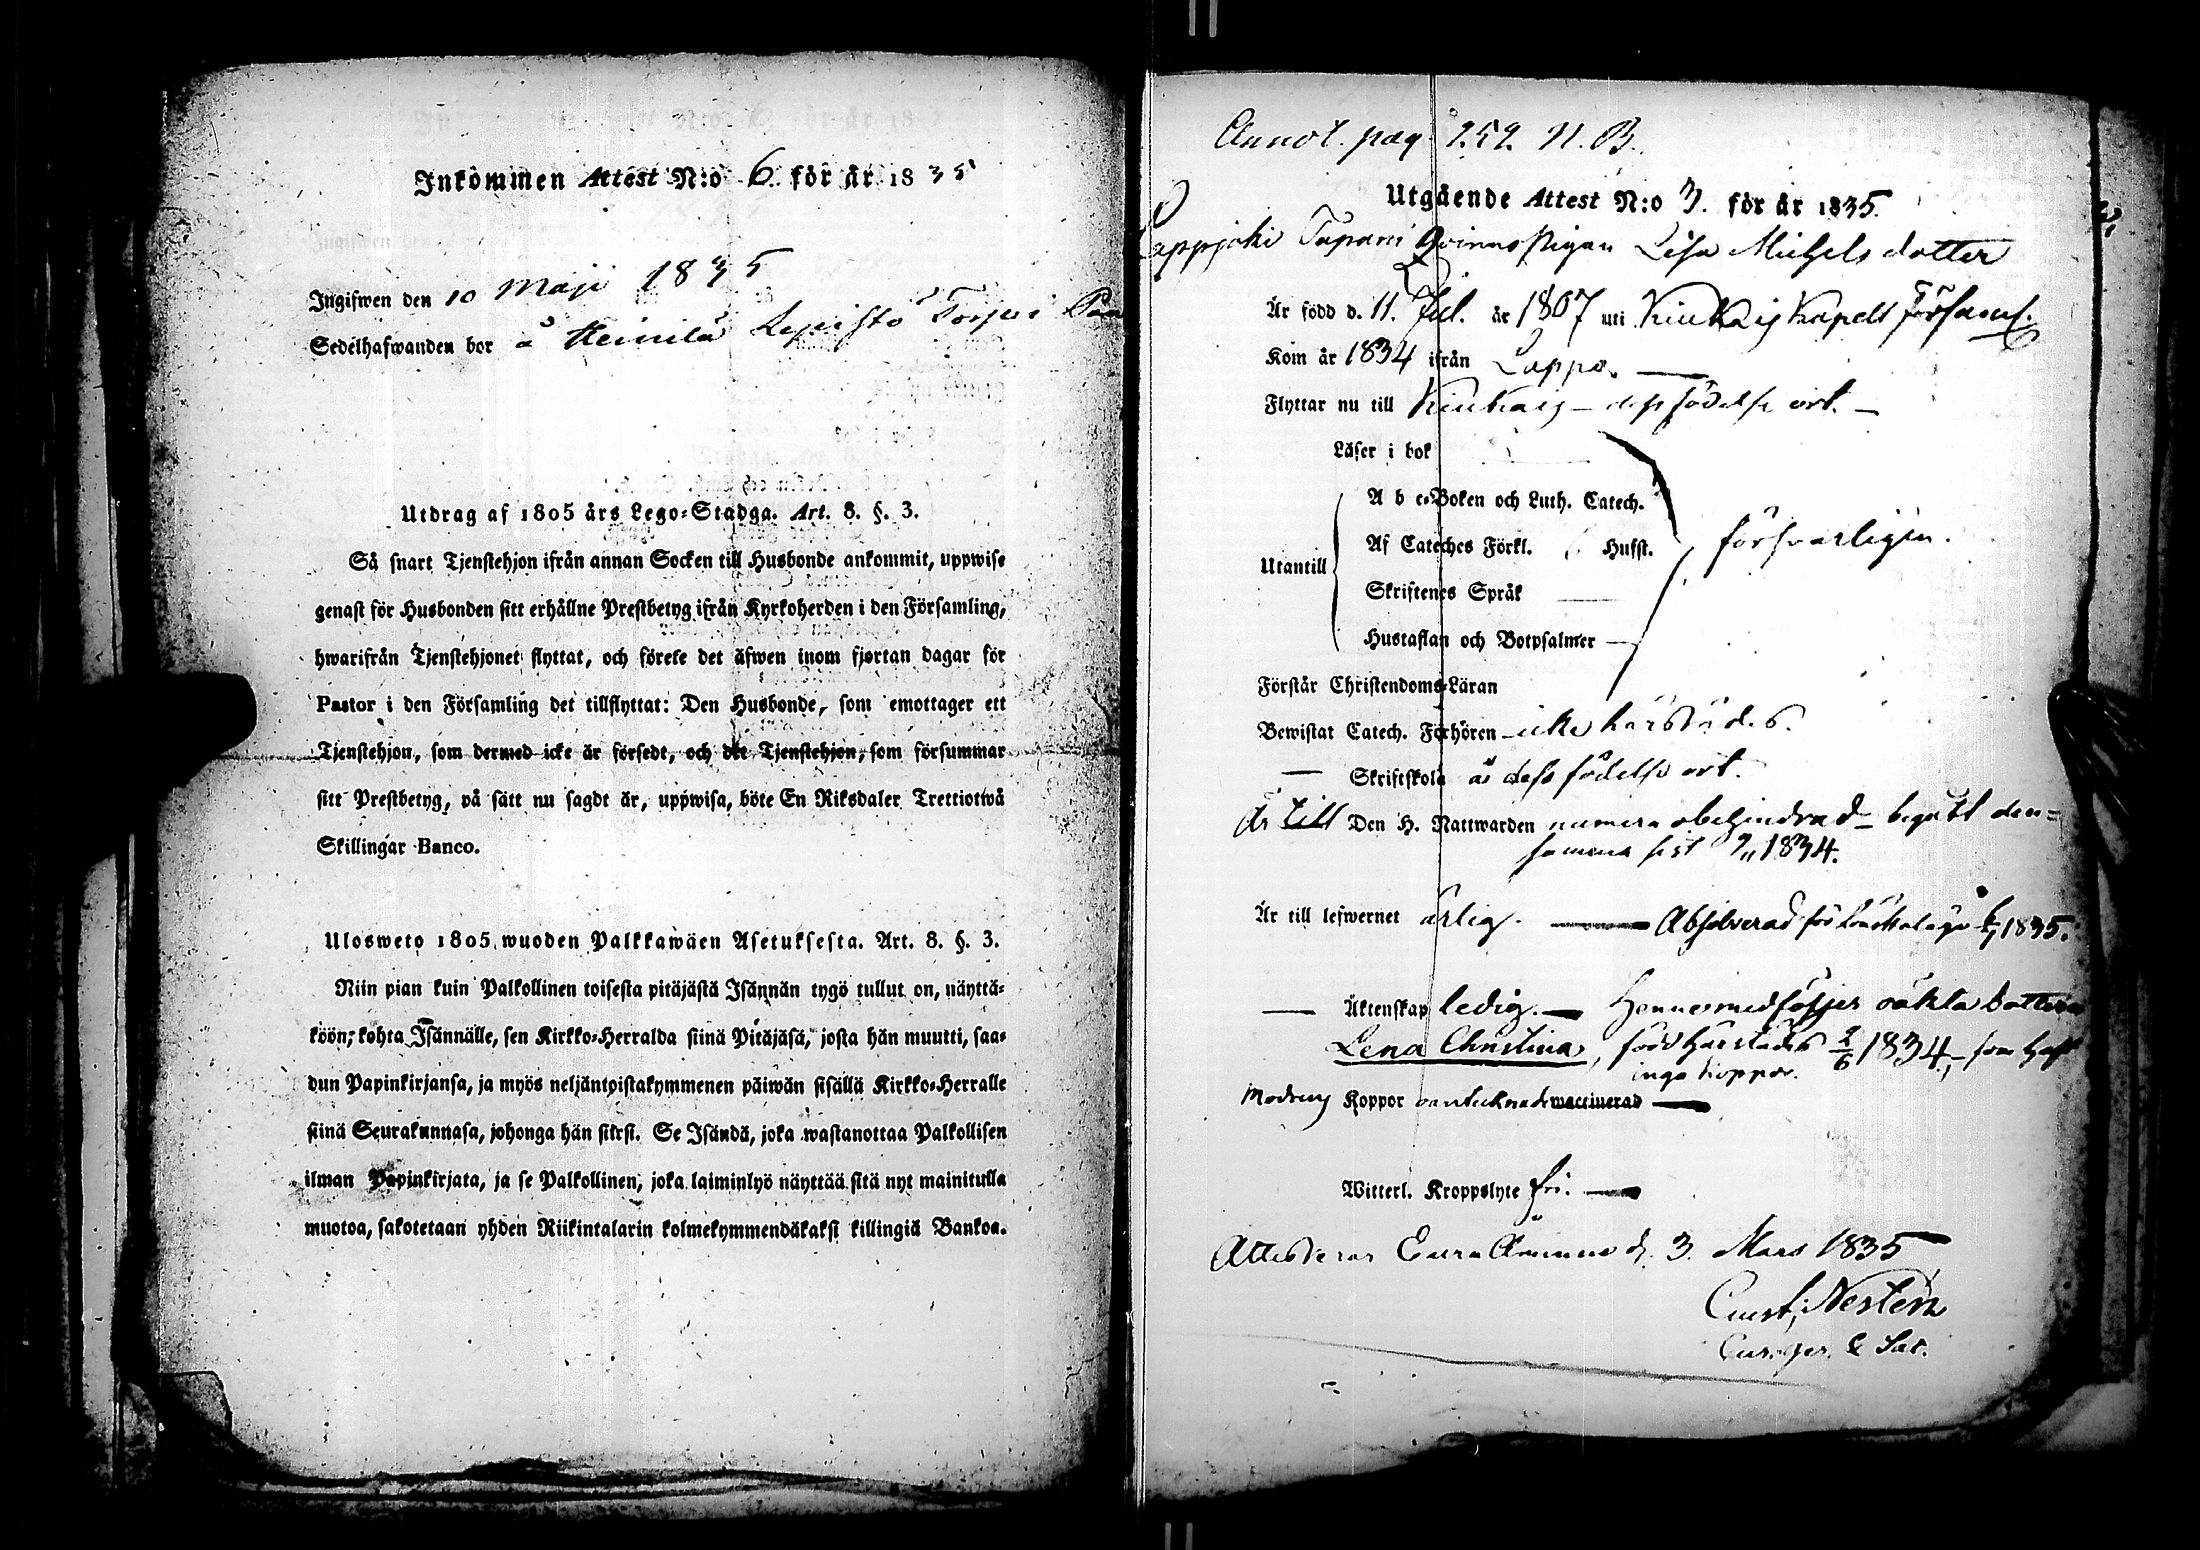 Inkommen Attest N:o 6. för år 1835
Ingifwen den 10 Maji 1835
Sedelhafwanden bor å Heinilä Lepistö Torp i
Utdrag af 1805 års Lego-Stadga. Art. 8. §. 3.
Så snart Tjenstehjon ifrån annan Socken till Husbonde ankommit, uppwise
genast för Husbonden sitt erhållne Prestbetyg ifrån Kyrkoherden i den Församling,
hwarifrån Tjenstehjonet flyttat, och förete det äfwen inom fjortan dagar för
Pastor i den Församling det tillflyttat: Den Husbonde, som emottager ett
Tjenstehjon, som dermed icke är försedt, och det Tjenstehjon, som försummar
sitt Prestbetyg, på sätt nu sagdt är, uppwisa, böte En Riksdaler Trettiotwå
Skillingar Banco.
Ulosweto 1805 wuoden Palkkawäen Asetuksesta. Art. 8. §. 3.
Niin pian kuin Palkollinen toisesta pitäjästä Isännän tygö tullut on, näyttä-
köön, kohta Isännälle, sen Kirkko-Herralda siinä Pitäjäsä, josta hän muutti, saa-
dun Papinkirjansa, ja myös neljäntoistakymmenen päiwän sisällä Kirkko-Herralle
siinä Seurakunnasa, johonga hän siirsi. Se Isändä, joka wastanottaa Palkollisen
ilman Papinkirjata, ja se Palkollinen, joka laiminlyö näyttää sitä nyt mainitulla
muotoa, sakotetaan yhden Riikintalarin kolmekymmendäkaksi killingiä Bankoa.
Annot. pag 252 N. B.
Utgående Attest N:o 3. för år 1835.
Lappjoki Tapani Qvinnspigan Lisa Michels dotter
Är född d. 11. Jul. år 1807 uti Kiukais Kapells Församl.
Kom år 1834 ifrån Lappo.
Flyttar nu till Kiukais – dess födelse ort. –
Läser i bok
A b c-Boken och Luth. Catech.
Af Cateches Förkl. Hufst. försvarligen.
Utantill
Skriftenes Språk
Hustaflan och Botpsalmer
Förstår Christendoms-Läran
Bewistat Catech. Förhören icke härstädes.
— Skriftskola å dess födelse ort.
Är till Den H. Nattwarden numera obehindrad – begått den-
samma sist 1834.
Är till lefwernet ärlig. — Absolverad för 1835.
— Äktenskap ledig. — Henne medföljer oäkta dottren
Lena Christina, född härstädes 2/6 1834, – som haft
inga koppor.
Modren Koppor wactinerad —
Witterl. Kroppslyte fri. —
Attesteras Eura Åminne d. 3. Mars 1835